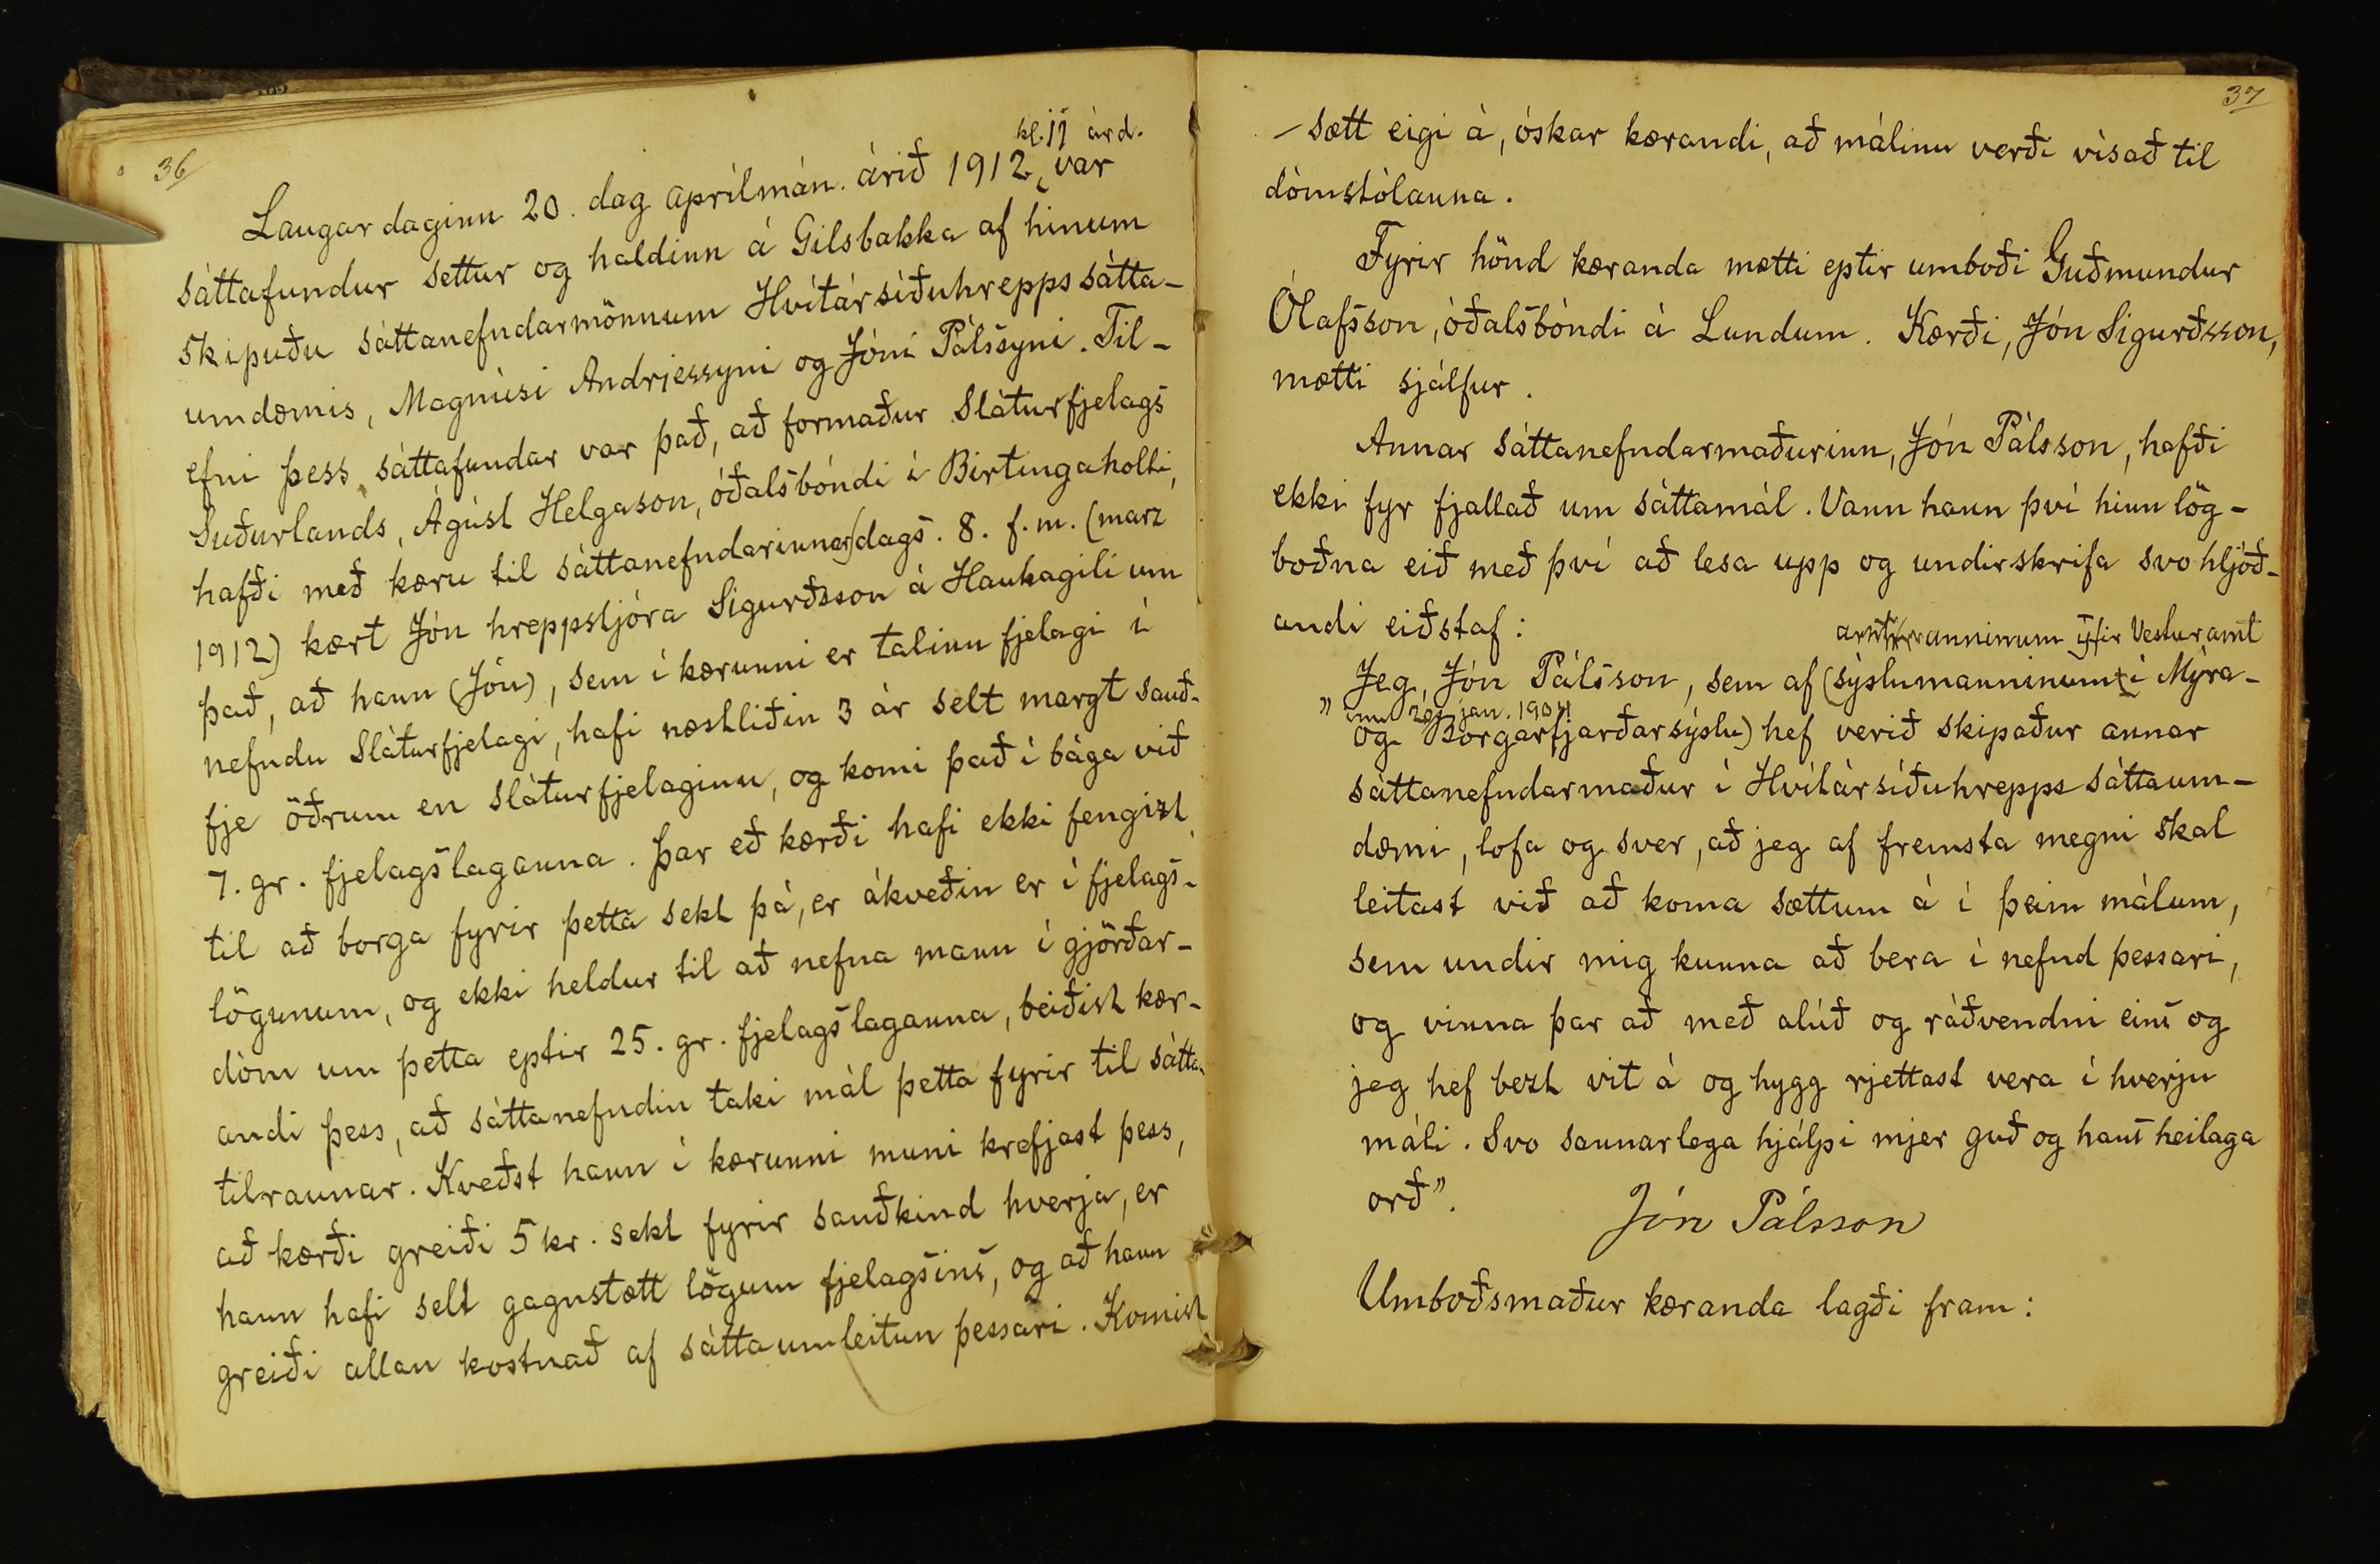 36
kl. 11 árd.
Laugardaginn 20. dag aprílmán. árið 1912, var
sáttafundur settur og haldinn á Gilsbakka af hinum
skipuðu sáttanefndarmönnum Hvítársíðuhrepps sátta-
umdæmis, Magnúsi Andrjessyni og Jóni Pálssyni. Til-
efni þess sáttafundar var það, að formaður Sláturfjelags
Suðurlands, Ágúst Helgason, óðalsbóndi í Birtingaholti,
hafði með kæru til sáttanefndarinnar, dags. 8. f. m. (marz
1912) kært Jón hreppstjóra Sigurðsson á Haukagili um
það, að hann (Jón), sem í kærunni er talinn fjelagi í
nefndu Sláturfjelagi, hafi næstliðin 3 ár selt margt sauð-
fje öðrum en sláturfjelaginu, og komi það í bága við
7. gr. fjelagslaganna. Þar eð kærði hafi ekki fengizt
til að borga fyrir þetta sekt þá, er ákveðin er í fjelags-
lögunum, og ekki heldur til að nefna mann í gjörðar-
dóm um þetta eptir 25. gr. fjelagslaganna, beiðist kær-
andi þess, að sáttanefndin taki mál þetta fyrir til sátta-
tilraunar. Kveðst hann í kærunni muni krefjast þess,
að kærði greiði 5 kr. sekt fyrir sauðkind hverja, er
hann hafi selt gagnstætt lögum fjelagsins, og að hann
greiði allan kostnað af sáttaumleitun þessari. Komist
37
sætt eigi á, óskar kærandi, að málinu verði vísað til
dómstólanna.
Fyrir hönd kæranda mætti eptir umboði Guðmundur
Ólafsson, óðalsbóndi á Lundum. Kærði, Jón Sigurðsson,
mætti sjálfur.
Annar sáttanefndarmaðurinn, Jón Pálsson, hafði
ekki fyr fjallað um sáttamál. Vann hann því hinn lög-
boðna eið með því að lesa upp og undirskrifa svo hljóð-
andi eiðstaf:
amtmanninum yfir Vesturamt
„Jeg, Jón Pálsson, sem af (sýslumanninum í Mýra-
inu 20. jan. 1904
og Borgarfjarðarsýslu) hef verið skipaður annar
sáttanefndarmaður í Hvítársíðuhrepps sáttaum-
dæmi, lofa og sver, að jeg af fremsta megni skal
leitast við að koma sættum á í þeim málum,
sem undir mig kunna að bera í nefnd þessari,
og vinna þar að með alúð og ráðvendni eins og
jeg hef bezt vit á og hygg rjettast vera í hverju
máli. Svo sannarlega hjálpi mjer guð og hans heilaga
orð".
Jón Pálsson
Umboðsmaður kæranda lagði fram: